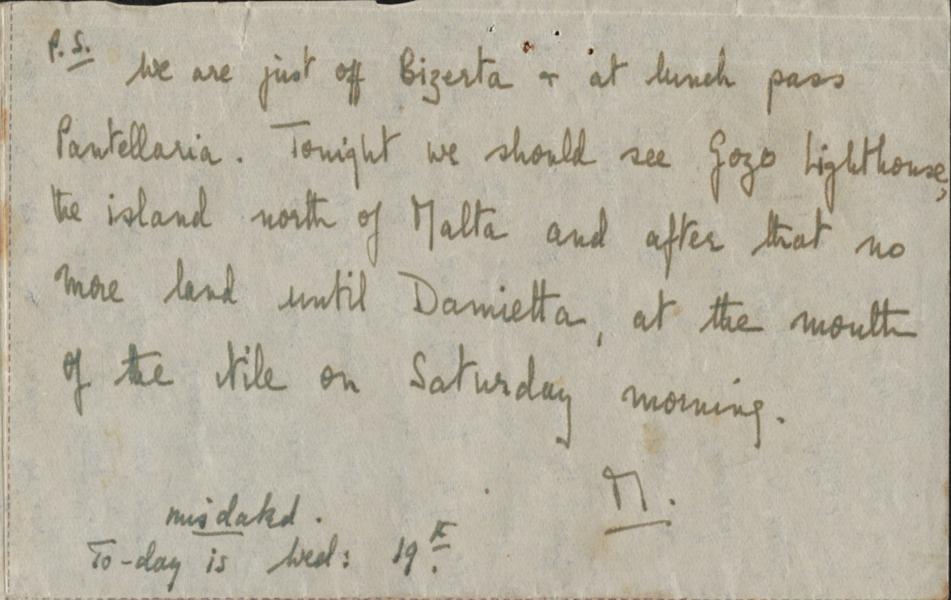 P.S. We are just off Bizerta & at lunch pass
Pantellaria. Tonight we should see Gozo Lighthouse,
the island north of Malta and after that no
more land until Damietta, at the mouth
of the Nile on Saturday morning.
M.
misdated.
To-day is Wed: 19th.